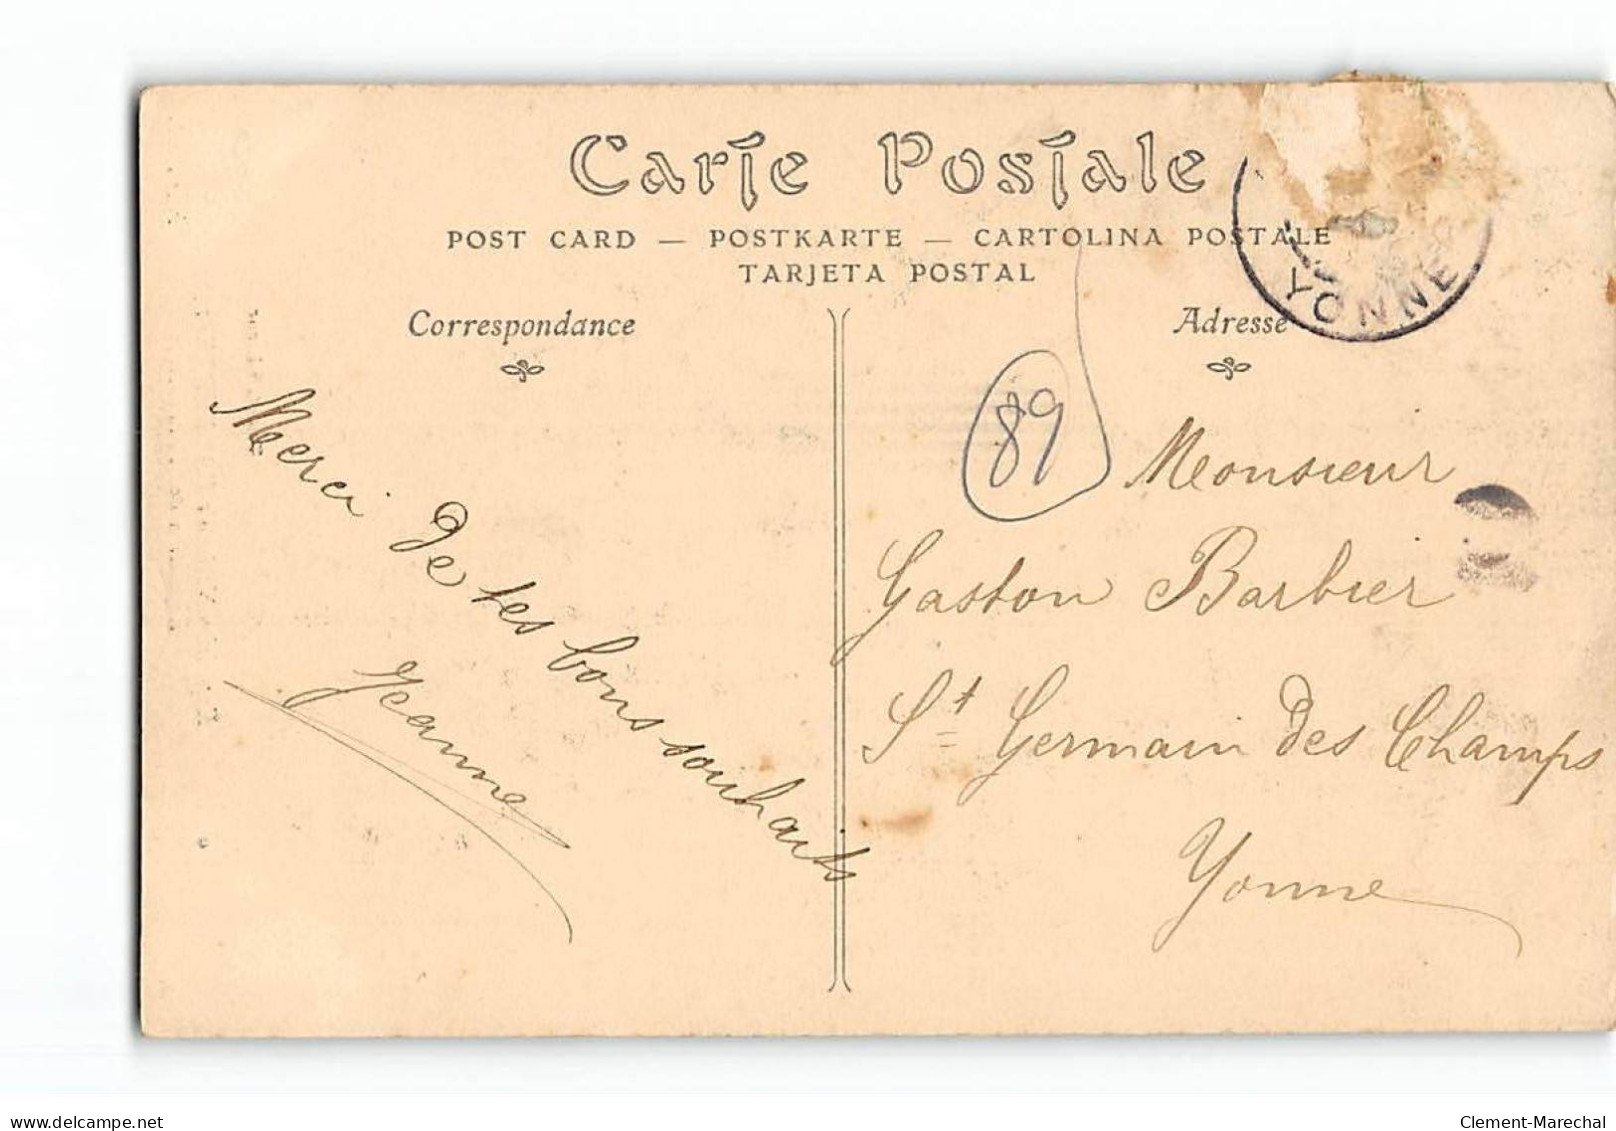 Carte Postale
POST CARD — POSTKARTE — CARTOLINA POSTALE
TARJETA POSTAL
Correspondance
Adresse
YONNE
89
Merci de tes bons souhaits
Jeanne
Monsieur
Gaston Barbier
St Germain des Champs
Yonne
www.delcampe.net
Clement-Marechal